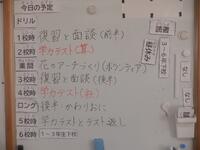 今日の予定
ドリル
1校時 復習と面談(前半)
2校時 学力テスト(算)
業間 花のアーチづくり(ボランティア)
3校時 復習と面談(後半)
4校時 学力テスト(社)
ロング 後半・かわりおに
5校時 学力テストとテスト返し
6校時 1~3年生下校
読書
昼休み
3~6年下校
なし
なし